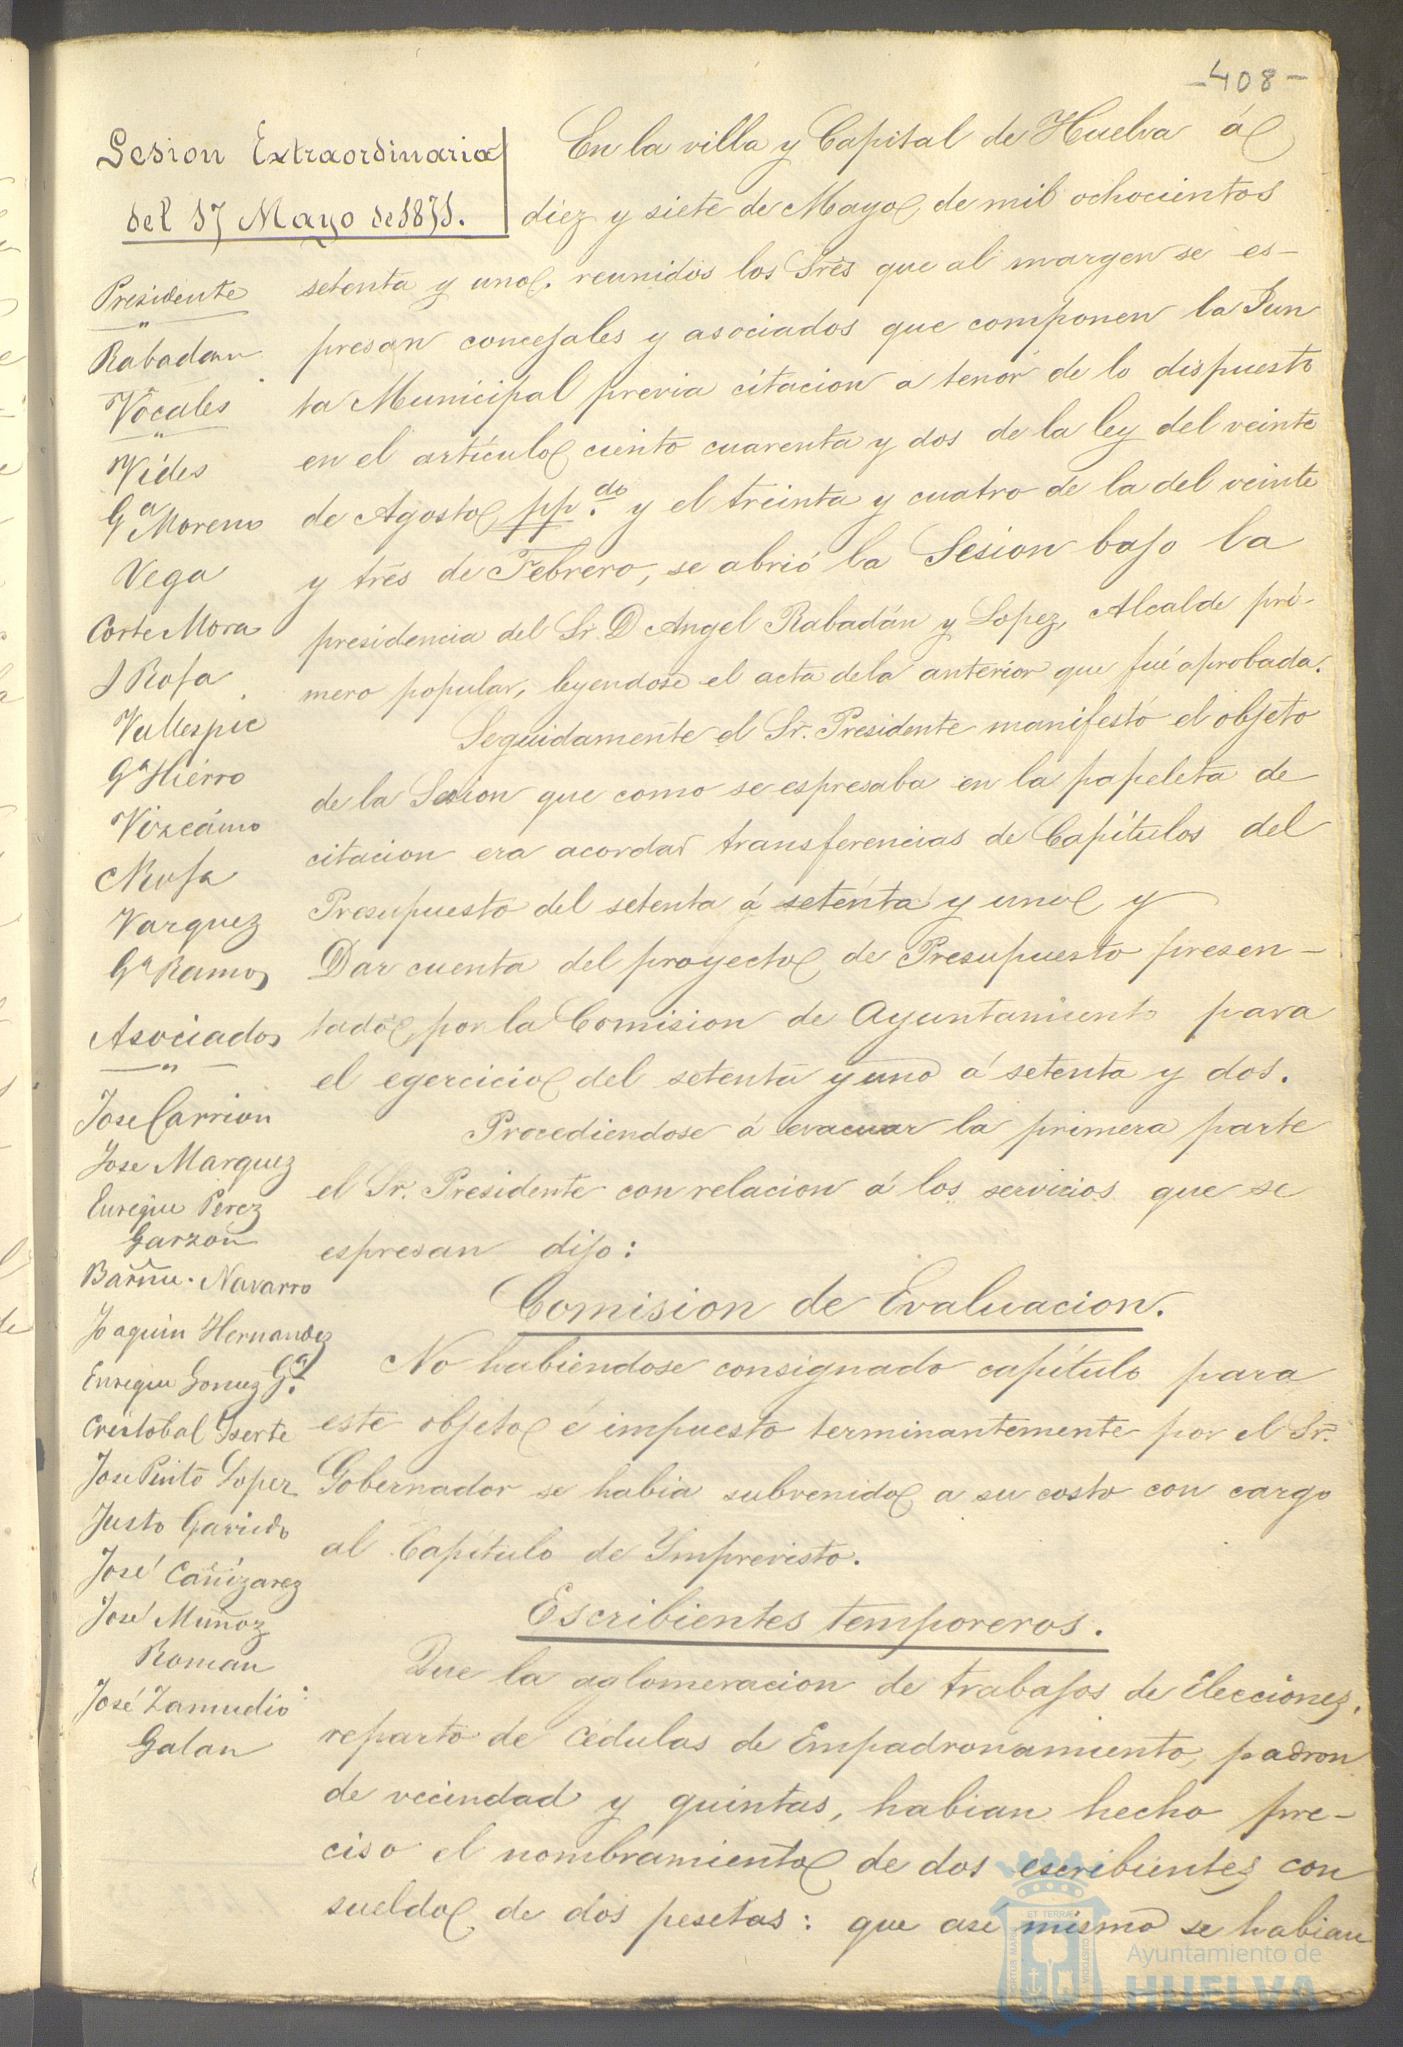 -408-
Sesion Extraordinaria
del 17 Mayo de 1871.
Presidente
Rabadan
Vocales
Vides
Gª Moreno
Vega
Corte Mora
J Rofa
Vallespin
Gª Hierro
Vizcaino
Vazquez
Gª Ramos
Asociados
Jose Carrion
Jose Marquez
Enrique Perez
Garzon
Bartme. Navarro
Joaquin Hernandez
Enrique Gomez Gª.
Cristobal Iserte
Jose Pinto Lopez
Justo Garrido
José Cañizarez
José Muñoz
Roman
José Zamudio
Galan
En la villa y Capital de Huelva á
diez y siete de Mayo de mil ochocientos
setenta y uno. reunidos los Sres que al margen se es-
presan concejales y asociados que componen la Jun
ta Municipal previa citacion a tenor de lo dispuesto
en el artículo ciento cuarenta y dos de la ley del veinte
de Agosto pp.do y el treinta y cuatro de la del veinte
y tres de Febrero, se abrió la Sesion bajo la
presidencia del Sr. D Angel Rabadán y Lopez, Alcalde pri-
mero popular, leyendose el acta de la anterior que fué aprobada.
Seguidamente el Sr. Presidente manifestó el objeto
de la Sesion que como se espresaba en la papeleta de
citacion era acordar transferencias de Capítulos del
Presupuesto del setenta á setenta y uno y
Dar cuenta del proyecto de Presupuesto presen-
tado por la Comision de Ayuntamiento para
el egercicio del setenta y uno á setenta y dos.
Procediendose á evacuar la primera parte
el Sr. Presidente con relacion á los servicios que se
espresan dijo:
Comision de Evaluacion.
No habiendose consignado capítulo para
este objeto é impuesto terminantemente por el Sr.
Gobernador se habia subvenido a su costo con cargo
al Capítulo de Imprevisto.
Escribientes temporeros.
Que la aglomeracion de trabajos de Elecciones,
reparto de Cédulas de Empadronamiento, padron
de vecindad y quintas, habian hecho pre-
ciso el nombramiento de dos escribientes con
sueldo de dos pesetas: que asi mismo se habian
Ayuntamiento de
HUELVA